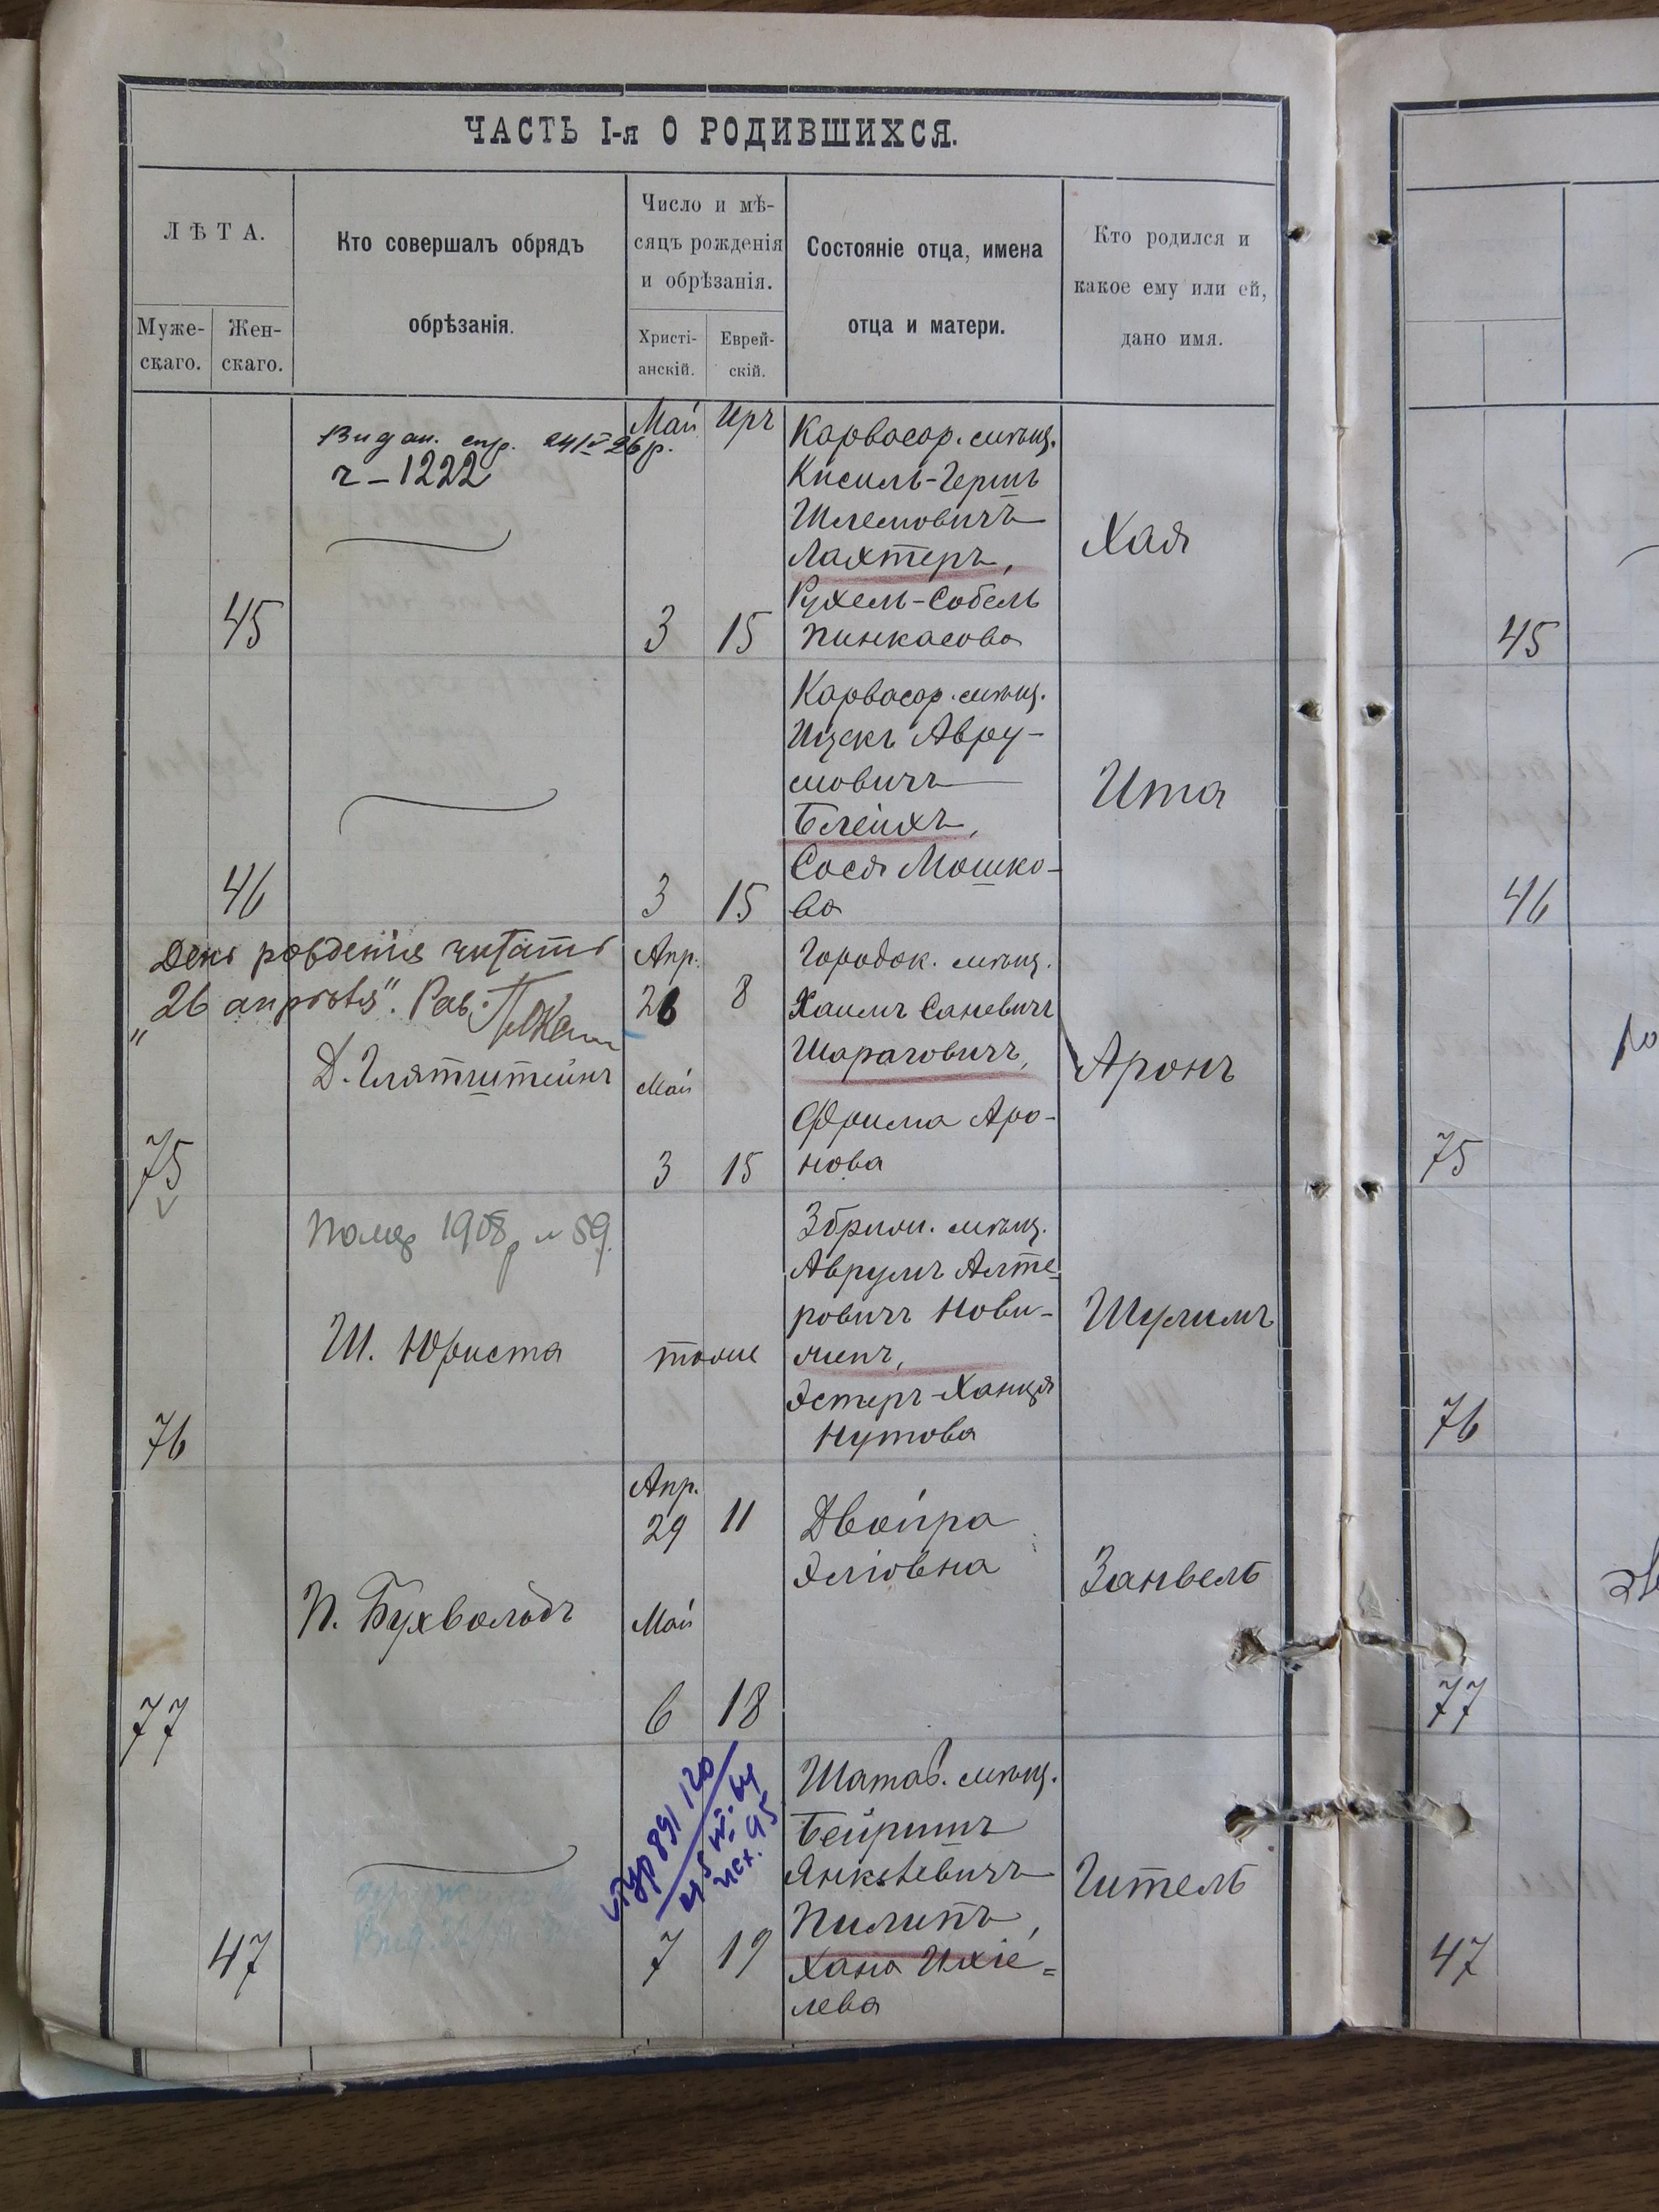 ЧАСТЬ I-я О РОДИВШИХСЯ.
ЛѢТА.
Муже-
скаго.
Жен-
скаго.
Кто совершалъ обрядъ
обрѣзанія.
Число и мѣ-
сяцъ рожденія
и обрѣзанія.
Христі-
анскій.
Еврей-
скій.
Состояніе отца, имена
отца и матери.
Кто родился и
какое ему или ей,
дано имя.
45
Видан. спр.
ч - 1222
Май Иръ
3 15
Карвасар. мѣщ.
Кисиль-Гершъ
Шлемовичъ
Лахтеръ,
Рухель-Собель
Пинкасова
Хая
45
46
3 15
Карвасар. мѣщ.
Ицекъ Авру-
мовичъ
Блейхъ,
Сося Мошко-
ва
Ита
46
День рождения читать
"26 апрѣля". Рав.
Д. Глятштейнъ
75
Апр.
26 8
Май
3 15
Городок. мѣщ.
Хаимъ Саневичъ
Шараговичъ,
Фрима Аро-
нова
Аронъ
75
1908 59
Ш. Юриста
76
тоже
Збриж. мѣщ.
Аврумъ Алте-
ровичъ
Эстеръ-Ханця
Нутова
Шулимъ
76
П. Бухвольдъ
77
Апр.
29 11
Май
6 18
Двойра
Эліовна
Занвель
77
47
7 19
Шатав. мѣщ.
Бейришъ
Янкелевичъ
Пилипъ,
Хана Ихіе-
лева
Гитель
47